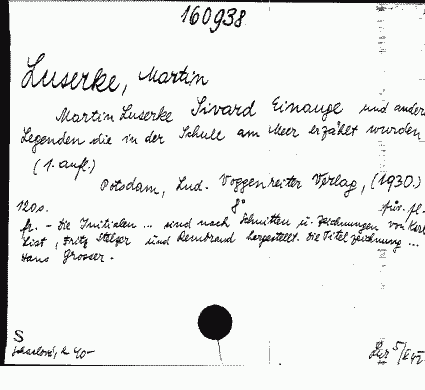 160938
Luserke, Martin
Martin Luserke Sivard Einauge und andere
Legenden die in der Schule am Meer erzählt wurden
(1. aufl.)
Potsdam, Lud. Voggenreiter Verlag, (1930.)
120s. 8° pův. pl.
fr. - Die Initialen ... sind nach Schnitten u. Zeichnungen von Karl
List, Fritz Stelzer und Rembrand hergestellt. Die Titelzeichnung ...
Hans Grosser.
S
40-